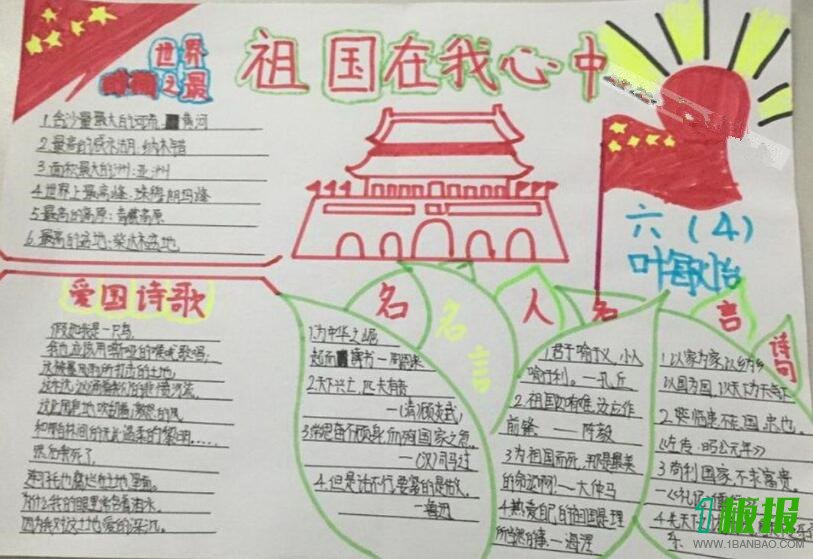 祖国在我心中
世界
之最
1.含沙量最大的河流:黄河
2.最高的咸水湖:纳木错
3.面积最大的洲:亚洲
4.世界上最高峰:珠穆朗玛峰
5.最高的高原:青藏高原
6.最高的盆地:柴达木盆地
六(4)
爱国诗歌
假如我是一只鸟,
我也应该用嘶哑的喉咙歌唱:
这被暴风雨所打击的土地,
和那来自林间的无比温柔的黎明……
然后我死了,
连羽毛也腐烂在土地里面。
为什么我的眼里常含着泪水,
因为我对这土地爱的深沉。
名
名言
1.为中华之崛
起而读书—周恩来
2.天下兴亡,匹夫有责
—(清)顾炎武
3.常思奋不顾身,而殉国家之急。
—(汉)司马迁
4.但是论不行,要紧的是做。
—鲁迅
人名
1.君子喻于义,小人
喻于利。—孔丘
2.祖国如有难,汝应作
前锋 —陈毅
3.为祖国而死,那是最美
的命运啊!—大仲马
4.热爱自己的祖国是理
所当然的事—海涅
言
诗句
1.以家为家,以乡为乡,
以国为国,以天下为天下
2.临患不忘国,忠也。
《左传·
3.苟利国家,不求富贵。
—《礼记·儒行》
板报
WWW.1BANBAO.COM